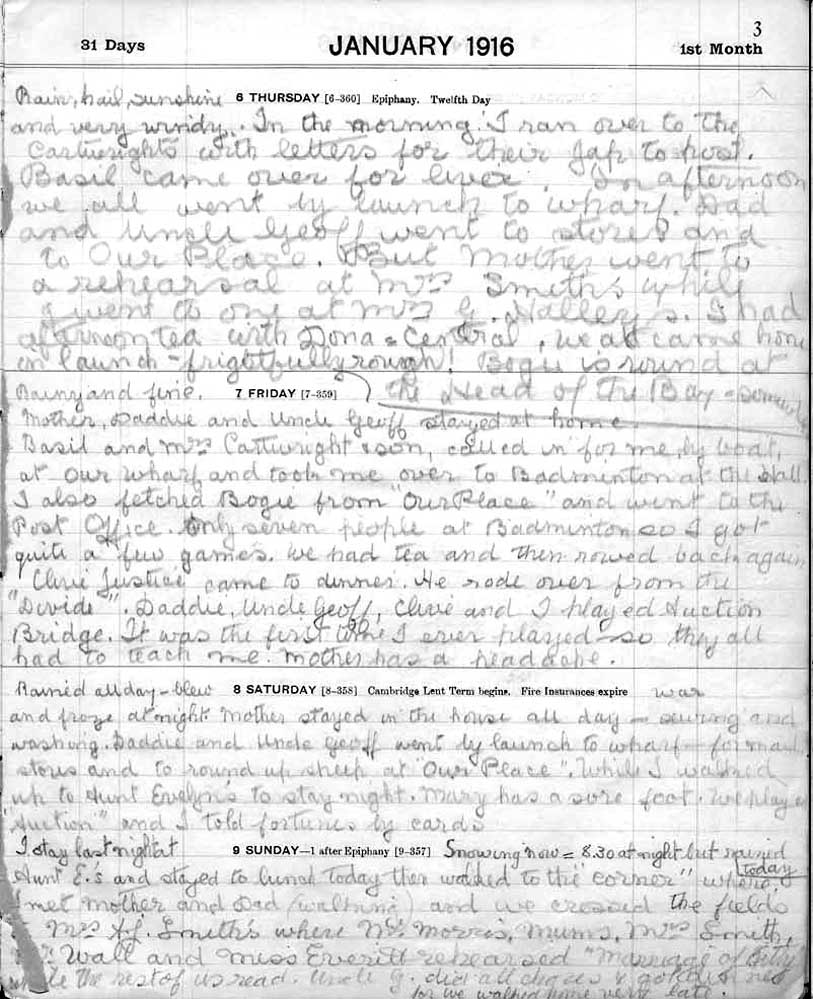 3
31 Days JANUARY 1916 1st Month
Rain, hail, sunshine 6 THURSDAY [6-360] Epiphany. Twelfth Day
and very windy. In the morning I ran over to the
Cartwrights with letters for their Jap to post.
Basil came over for liver. In afternoon
we all went by launch to wharf. Dad
and Uncle Geoff went to stores and
to Our Place. But Mother went to
a rehearsal at Mrs Smith's while
I went to one at Mrs G. Halley's. I had
afternoon tea with Dona = Central, we all came home
in launch - frightfully rough! Bogie is round at
Rainy and fine. 7 FRIDAY [7-359] the Head of the Bay -
Mother, Daddie and Uncle Geoff stayed at home.
Basil and Mrs Cartwright & son, called in for me, by boat,
at our wharf and took me over to Badminton at the Hall.
I also fetched Bogie from "Our Place" and went to the
Post Office. Only seven people at Badminton so I got
quite a few games. We had tea and then rowed back again
Clive Justice came to dinner. He rode over from the
"Divide". Daddie, Uncle Geoff, Clive and I played Auction
Bridge. It was the first time I ever played so they all
had to teach me. Mother has a headache.
Rained all day - blew 8 SATURDAY [8-358] Cambridge Lent Term begins. Fire Insurances expire war
and froze at night. Mother stayed in the house all day - sewing and
washing. Daddie and Uncle Geoff went by launch to wharf - for mail
stores and to round up sheep at "Our Place". While I walked
up to Aunt Evelyn's to stay night. Mary has a sore foot. We played
"Auction" and I told fortunes by cards
I stay last night at 9 SUNDAY—1 after Epiphany [9-357] Snowing now = 8.30 at night but rained
today
Aunt E.s and stayed to lunch today then walked to the "corner" where
I met Mother and Dad (walking) and we crossed the fields
Mrs A.J. Smith's where Mr. Morris, Mums, Mrs Smith,
Wall and Miss Everitt rehearsed "Marriage of Kitty"
while the rest of us read. Uncle G. did all chores &
for we walked home very late.